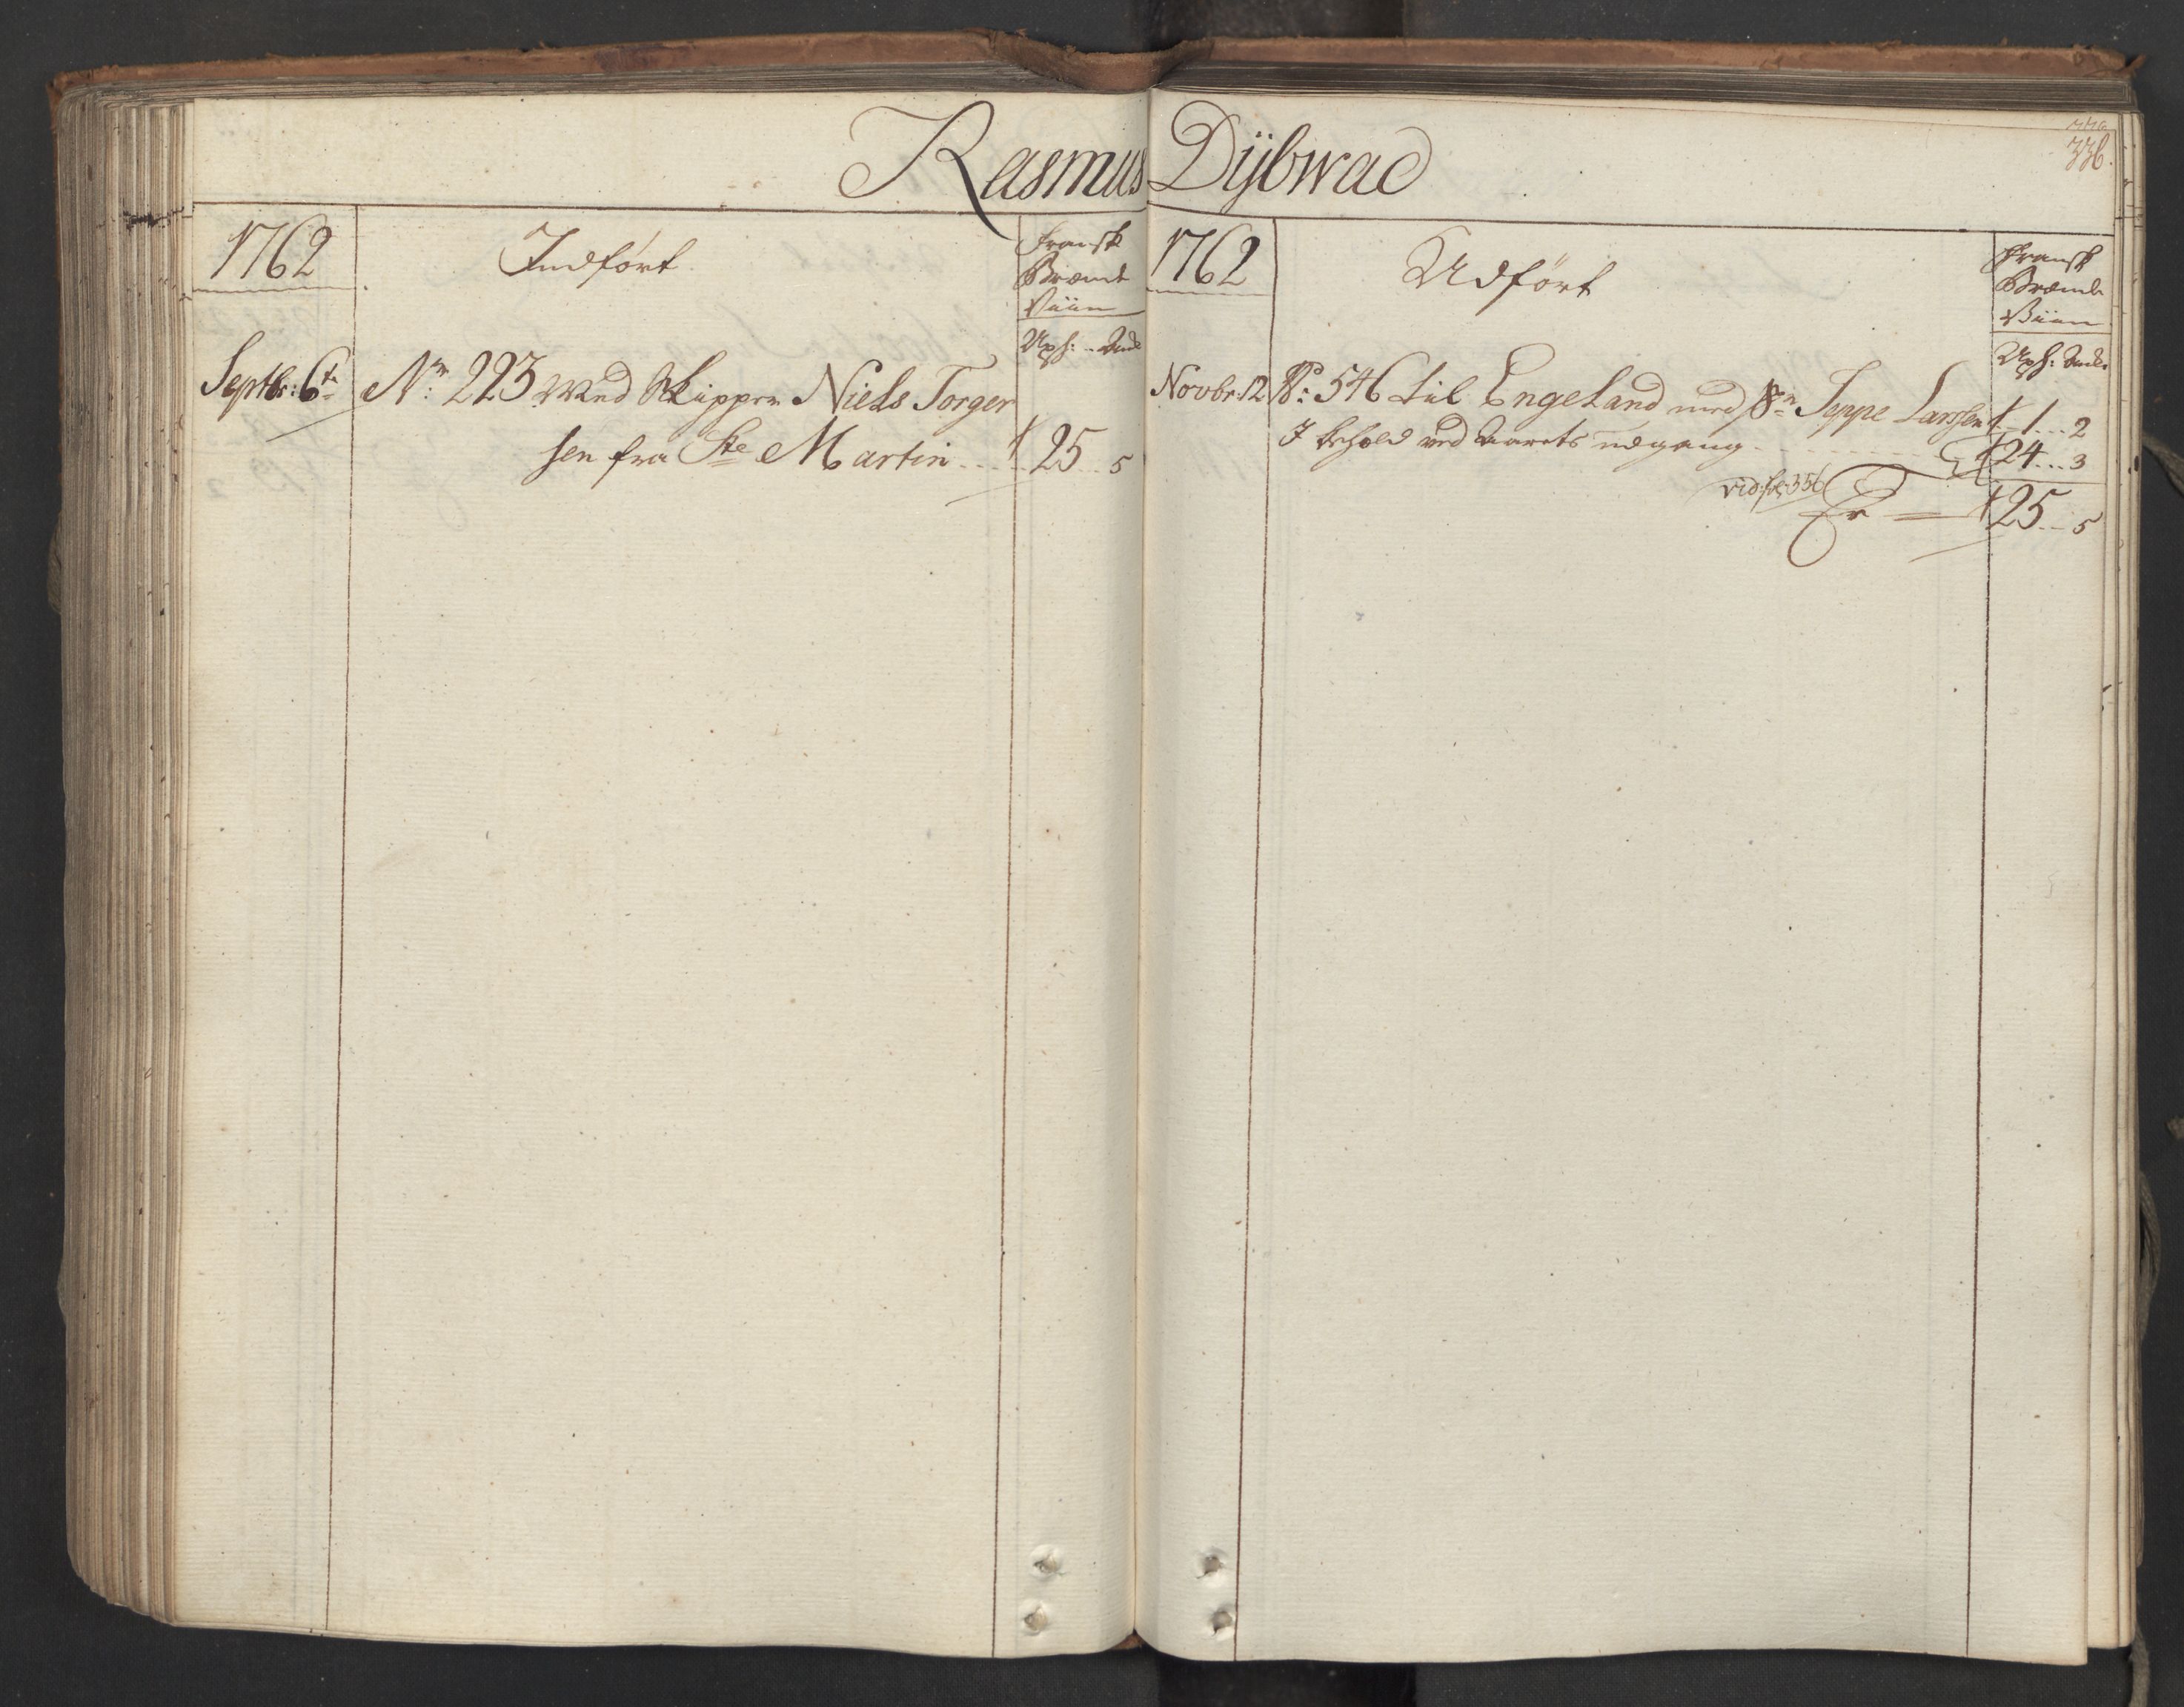 Rasmus Dÿbwad
336.
1762
Indført
Fransk
Brænde
Viin
Septbr: 6te
No: 223 Med Skipper Niels Torger
sen fra Ste Martin .... 25 .. 5
1762
Udført
Fransk
Brænde
Viin
Novbr: 12
No: 546 til Engeland med Sr Jeppe Larssen 1 ... 2
I behold ved Aarets udgang ........ 24 ... 3
vid: fol: 356
Er = 25 ... 5